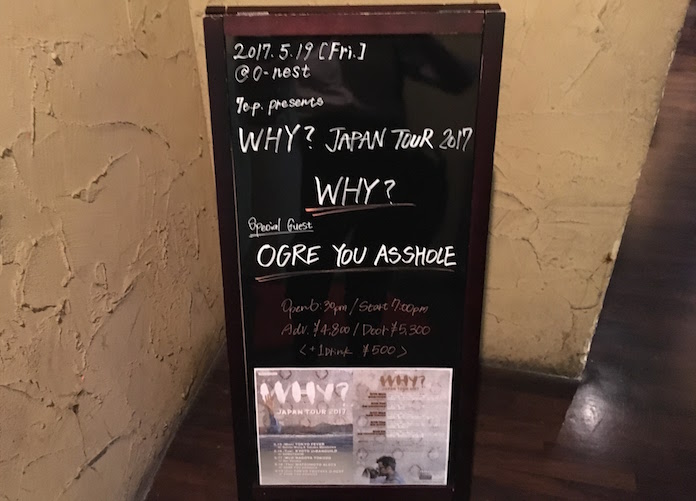 2017.5.19 [Fri.]
@O-nest
7e.p. presents
WHY? JAPAN TOUR 2017
WHY?
Special Guest
OGRE YOU ASSHOLE
Open 6:30pm / Start 7:00pm
Adv. ¥4,800 / Door ¥5,300
<+1 Drink ¥500>
WHY?
JAPAN TOUR 2017
WHY?